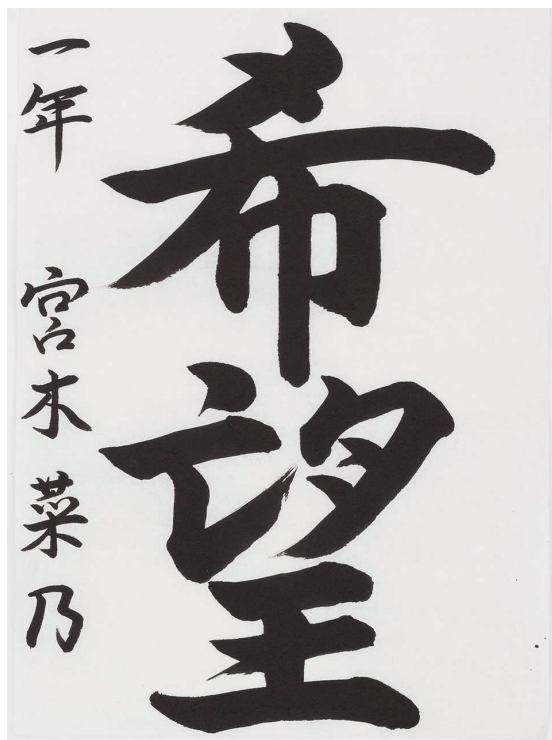 希望
一年 宮木菜乃